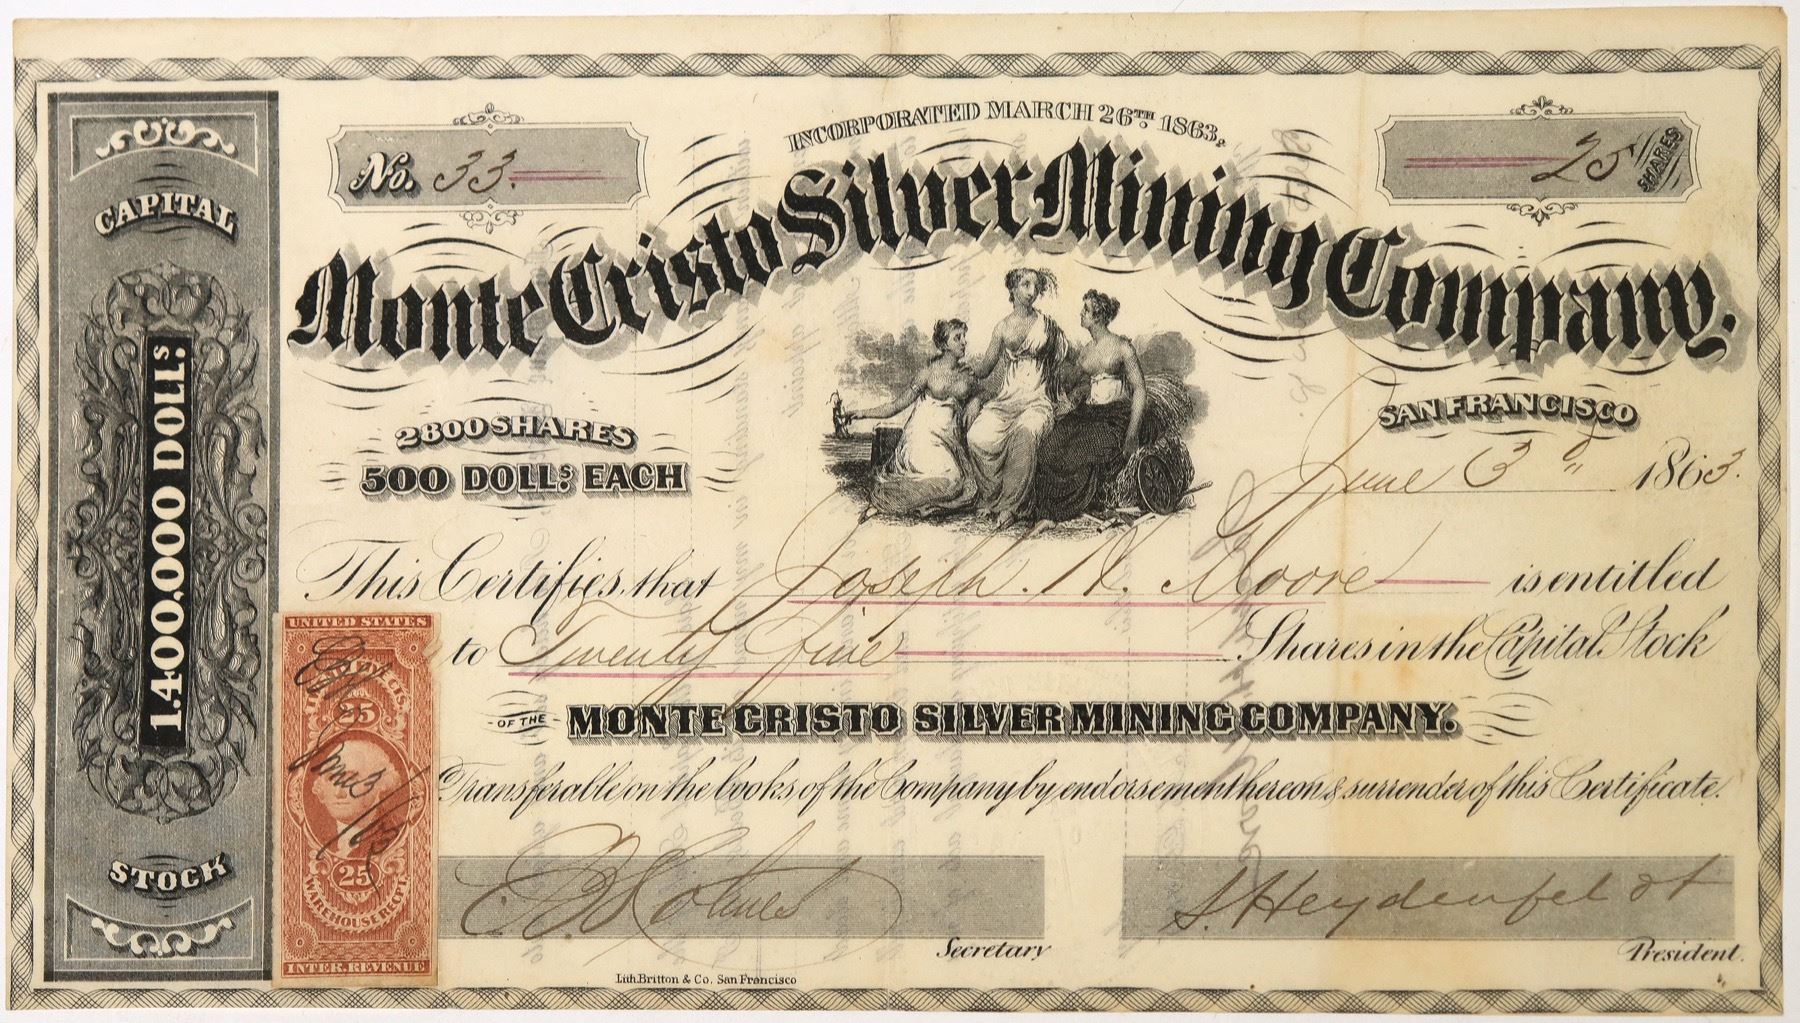 INCORPORATED MARCH 26TH 1863,
No. 33.
25 SHARES
Monte Cristo Silver Mining Company.
CAPITAL
1.400.000 DOLLS.
STOCK
2800 SHARES
500 DOLLS. EACH
SAN FRANCISCO
June 3d 1863.
This Certifies that Joseph. H. Moore is entitled
to Twenty five Shares in the Capital Stock
OF THE MONTE CRISTO SILVER MINING COMPANY.
Transferable on the books of the Company by endorsement hereon & surrender of this Certificate.
UNITED STATES
25
June 3/63
25
WAREHOUSE RECPT.
INTER. REVENUE
S. Heydenfeldt
Secretary
President.
Lith. Britton & Co. San Francisco